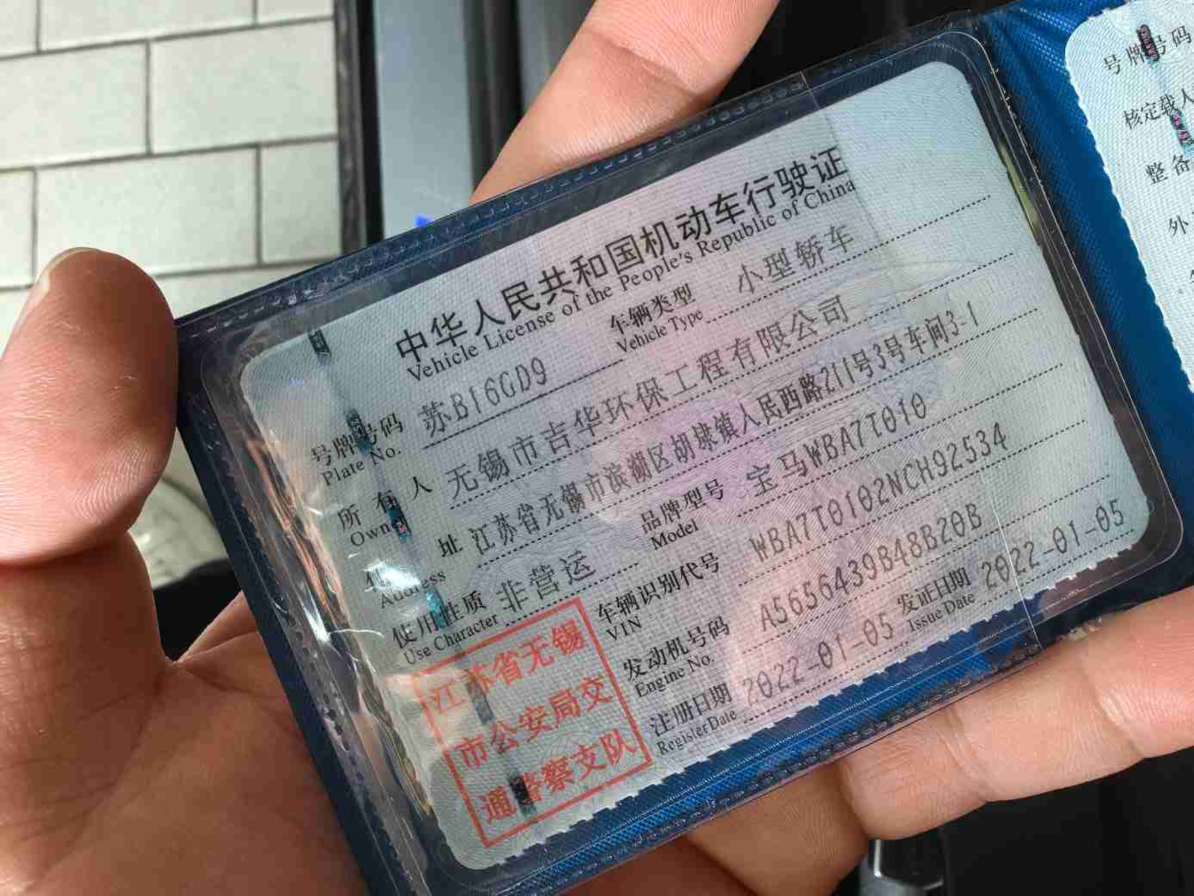 中华人民共和国机动车行驶证
Vehicle License of the People's Republic of China
号牌号码 苏B16GD9 车辆类型 小型轿车
Plate No. Vehicle Type
所有人 无锡市吉华环保工程有限公司
Owner
住址 江苏省无锡市滨湖区胡埭镇人民西路211号3号车间3-1
Address
使用性质 非营运 品牌型号 宝马WBA7T010
Use Character Model
车辆识别代号 WBA7T0102NCH92534
VIN
发动机号码 A5656439B48B20B
Engine No.
注册日期 2022-01-05 发证日期 2022-01-05
Register Date Issue Date
江苏省无锡
市公安局交
通警察支队
号牌号码
核定载人
整备
外